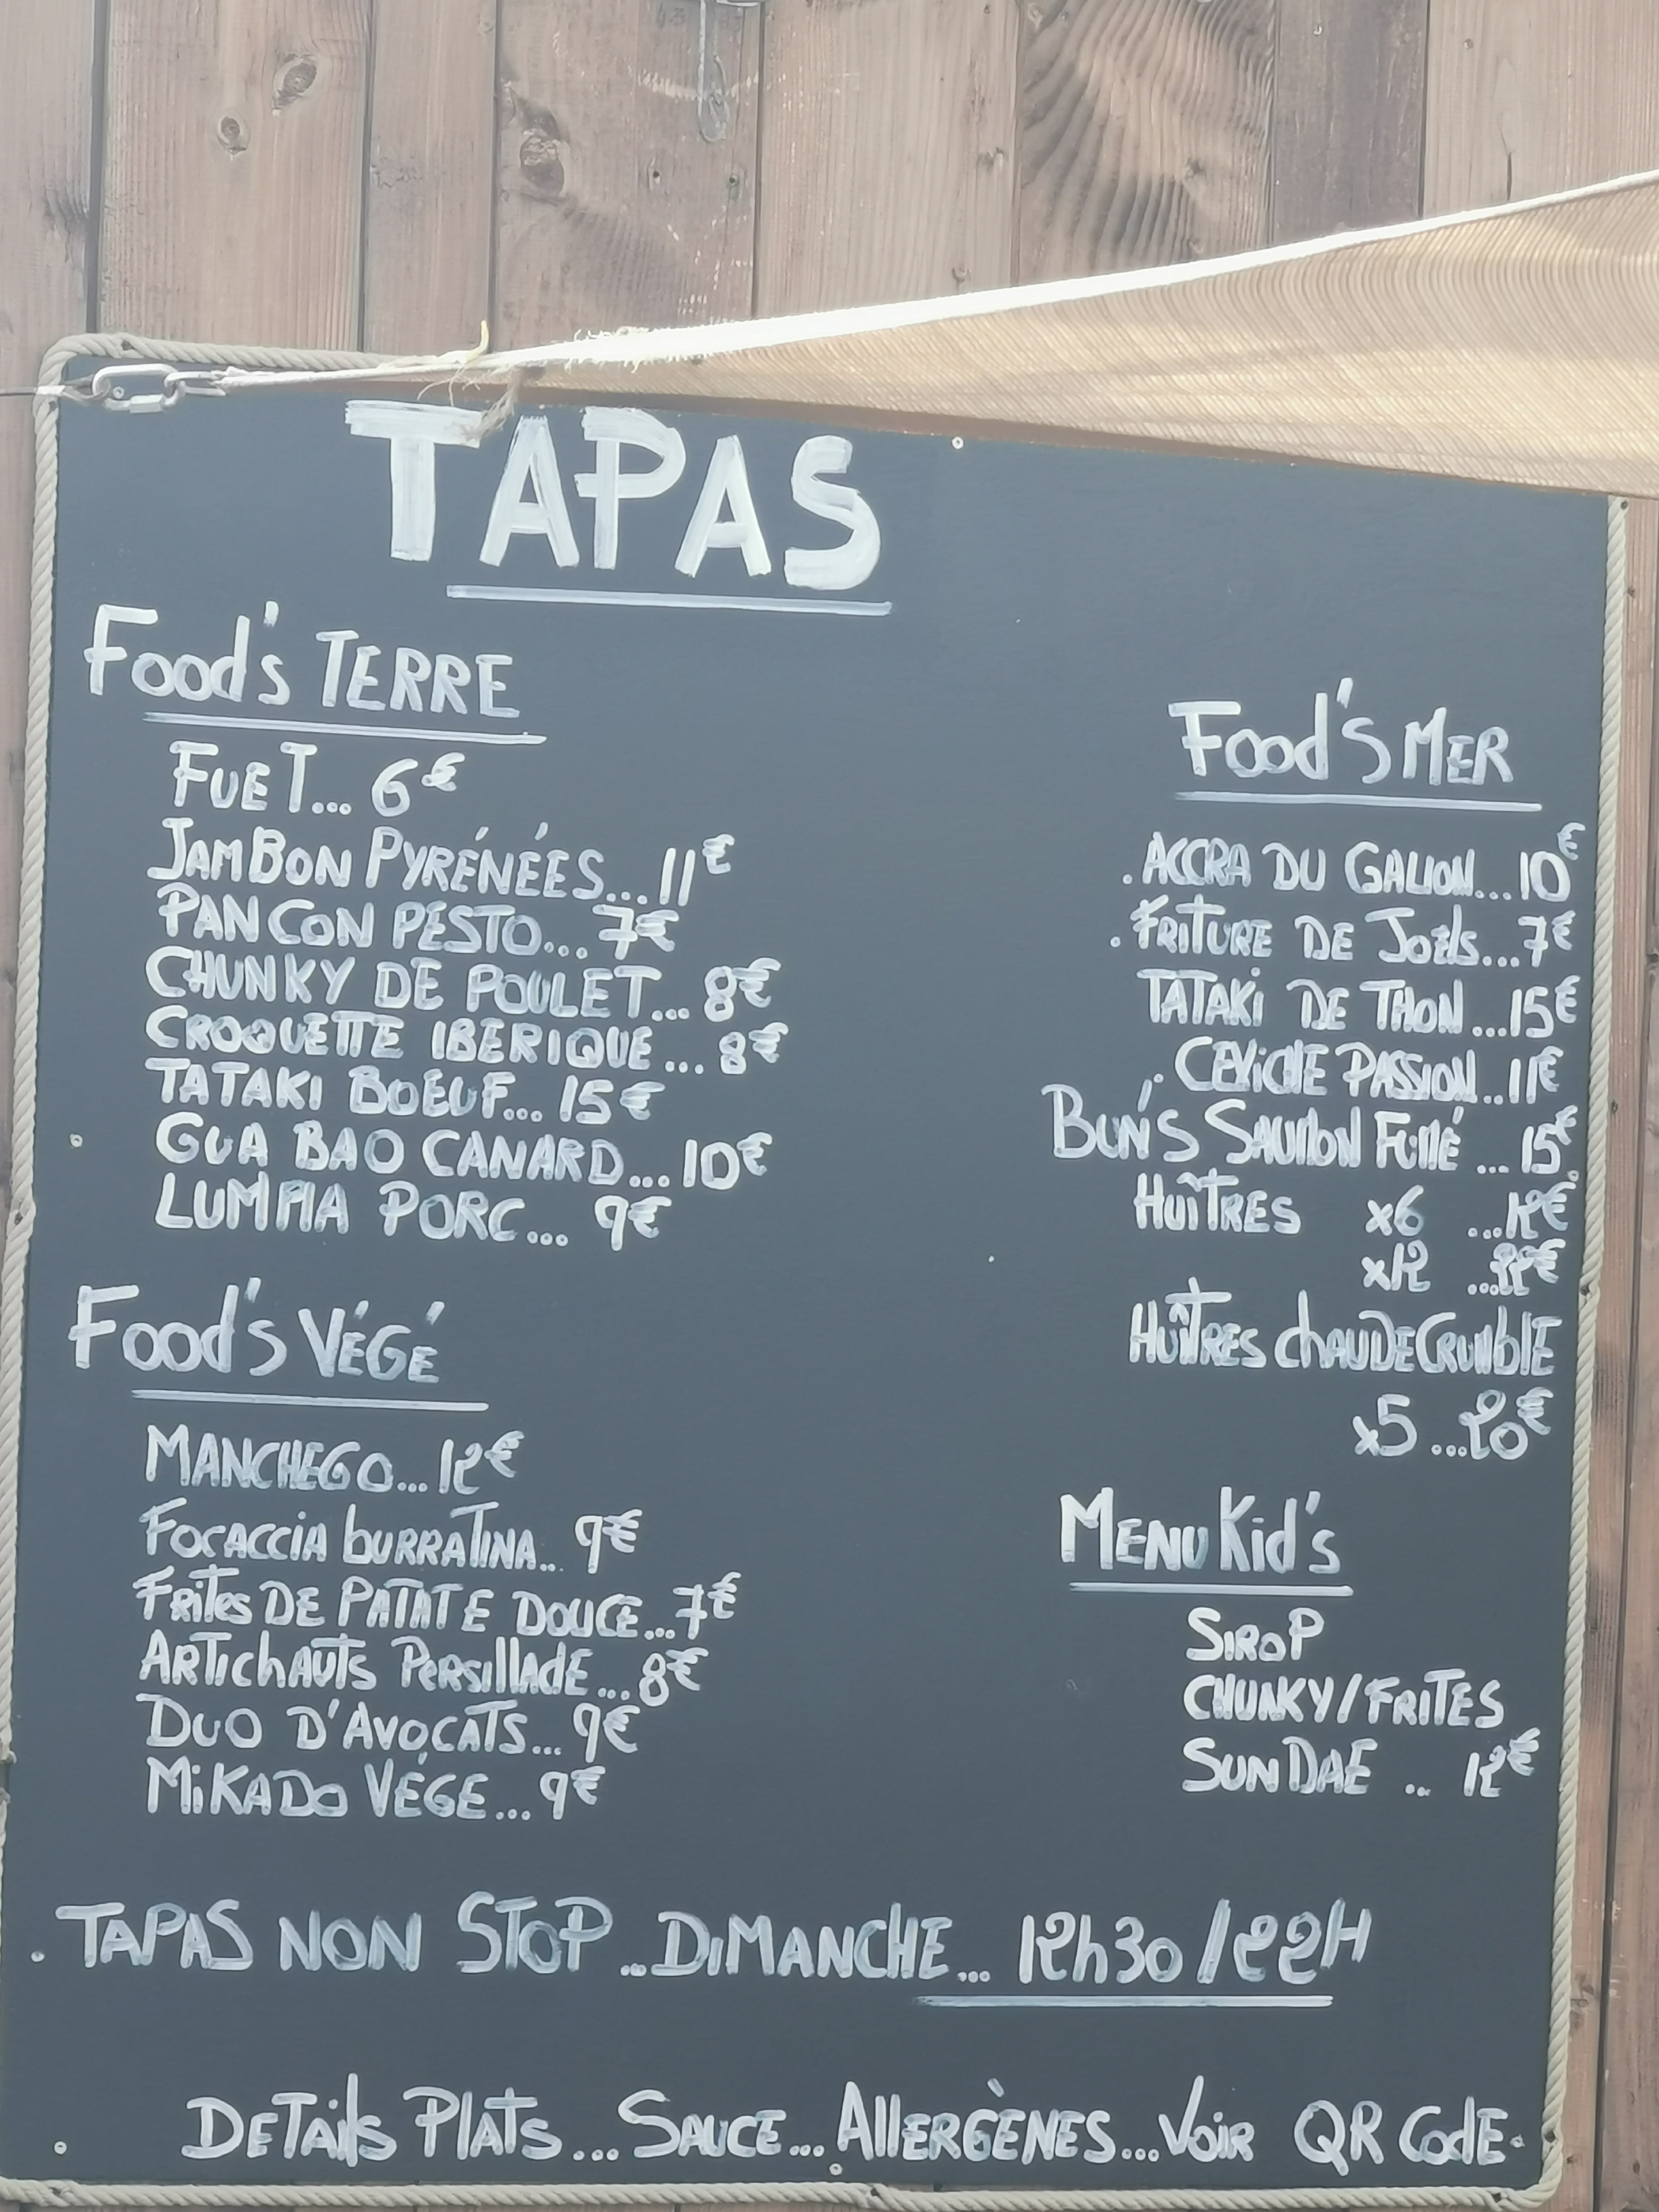 TAPAS
Food's TERRE
FUET... 6€
JAMBON PYRÉNÉES... 11€
PAN CON PESTO... 7€
CHUNKY DE POULET... 8€
CROQUETTE IBERIQUE... 8€
TATAKI BOEUF... 15€
GUA BAO CANARD... 10€
LUMPIA PORC... 9€
Food's VÉGÉ
MANCHEGO... 12€
FOCACCIA BURRATINA... 9€
FRITES DE PATATE DOUCE... 7€
ARTICHAUTS PERSILLADE... 8€
DUO D'AVOCATS... 9€
MIKADO VÉGE... 9€
Food'S MER
. ACCRA DU GALION... 10€
. FRITURE DE JOËLS... 7€
TATAKI DE THON... 15€
. CEVICHE PASSION... 11€
BUN'S SAUMON FUMÉ... 15€
HUÎTRES x6 ...12€
x12 ...22€
HUÎTRES CHAUDE CRUMBLE
x5 ...20€
MENU Kid's
SIROP
CHUNKY/FRITES
SUNDAE .. 12€
. TAPAS NON STOP... DIMANCHE... 12h30/22H
DETAILS PLATS... SAUCE... ALLERGÈNES... VOIR QR CODE